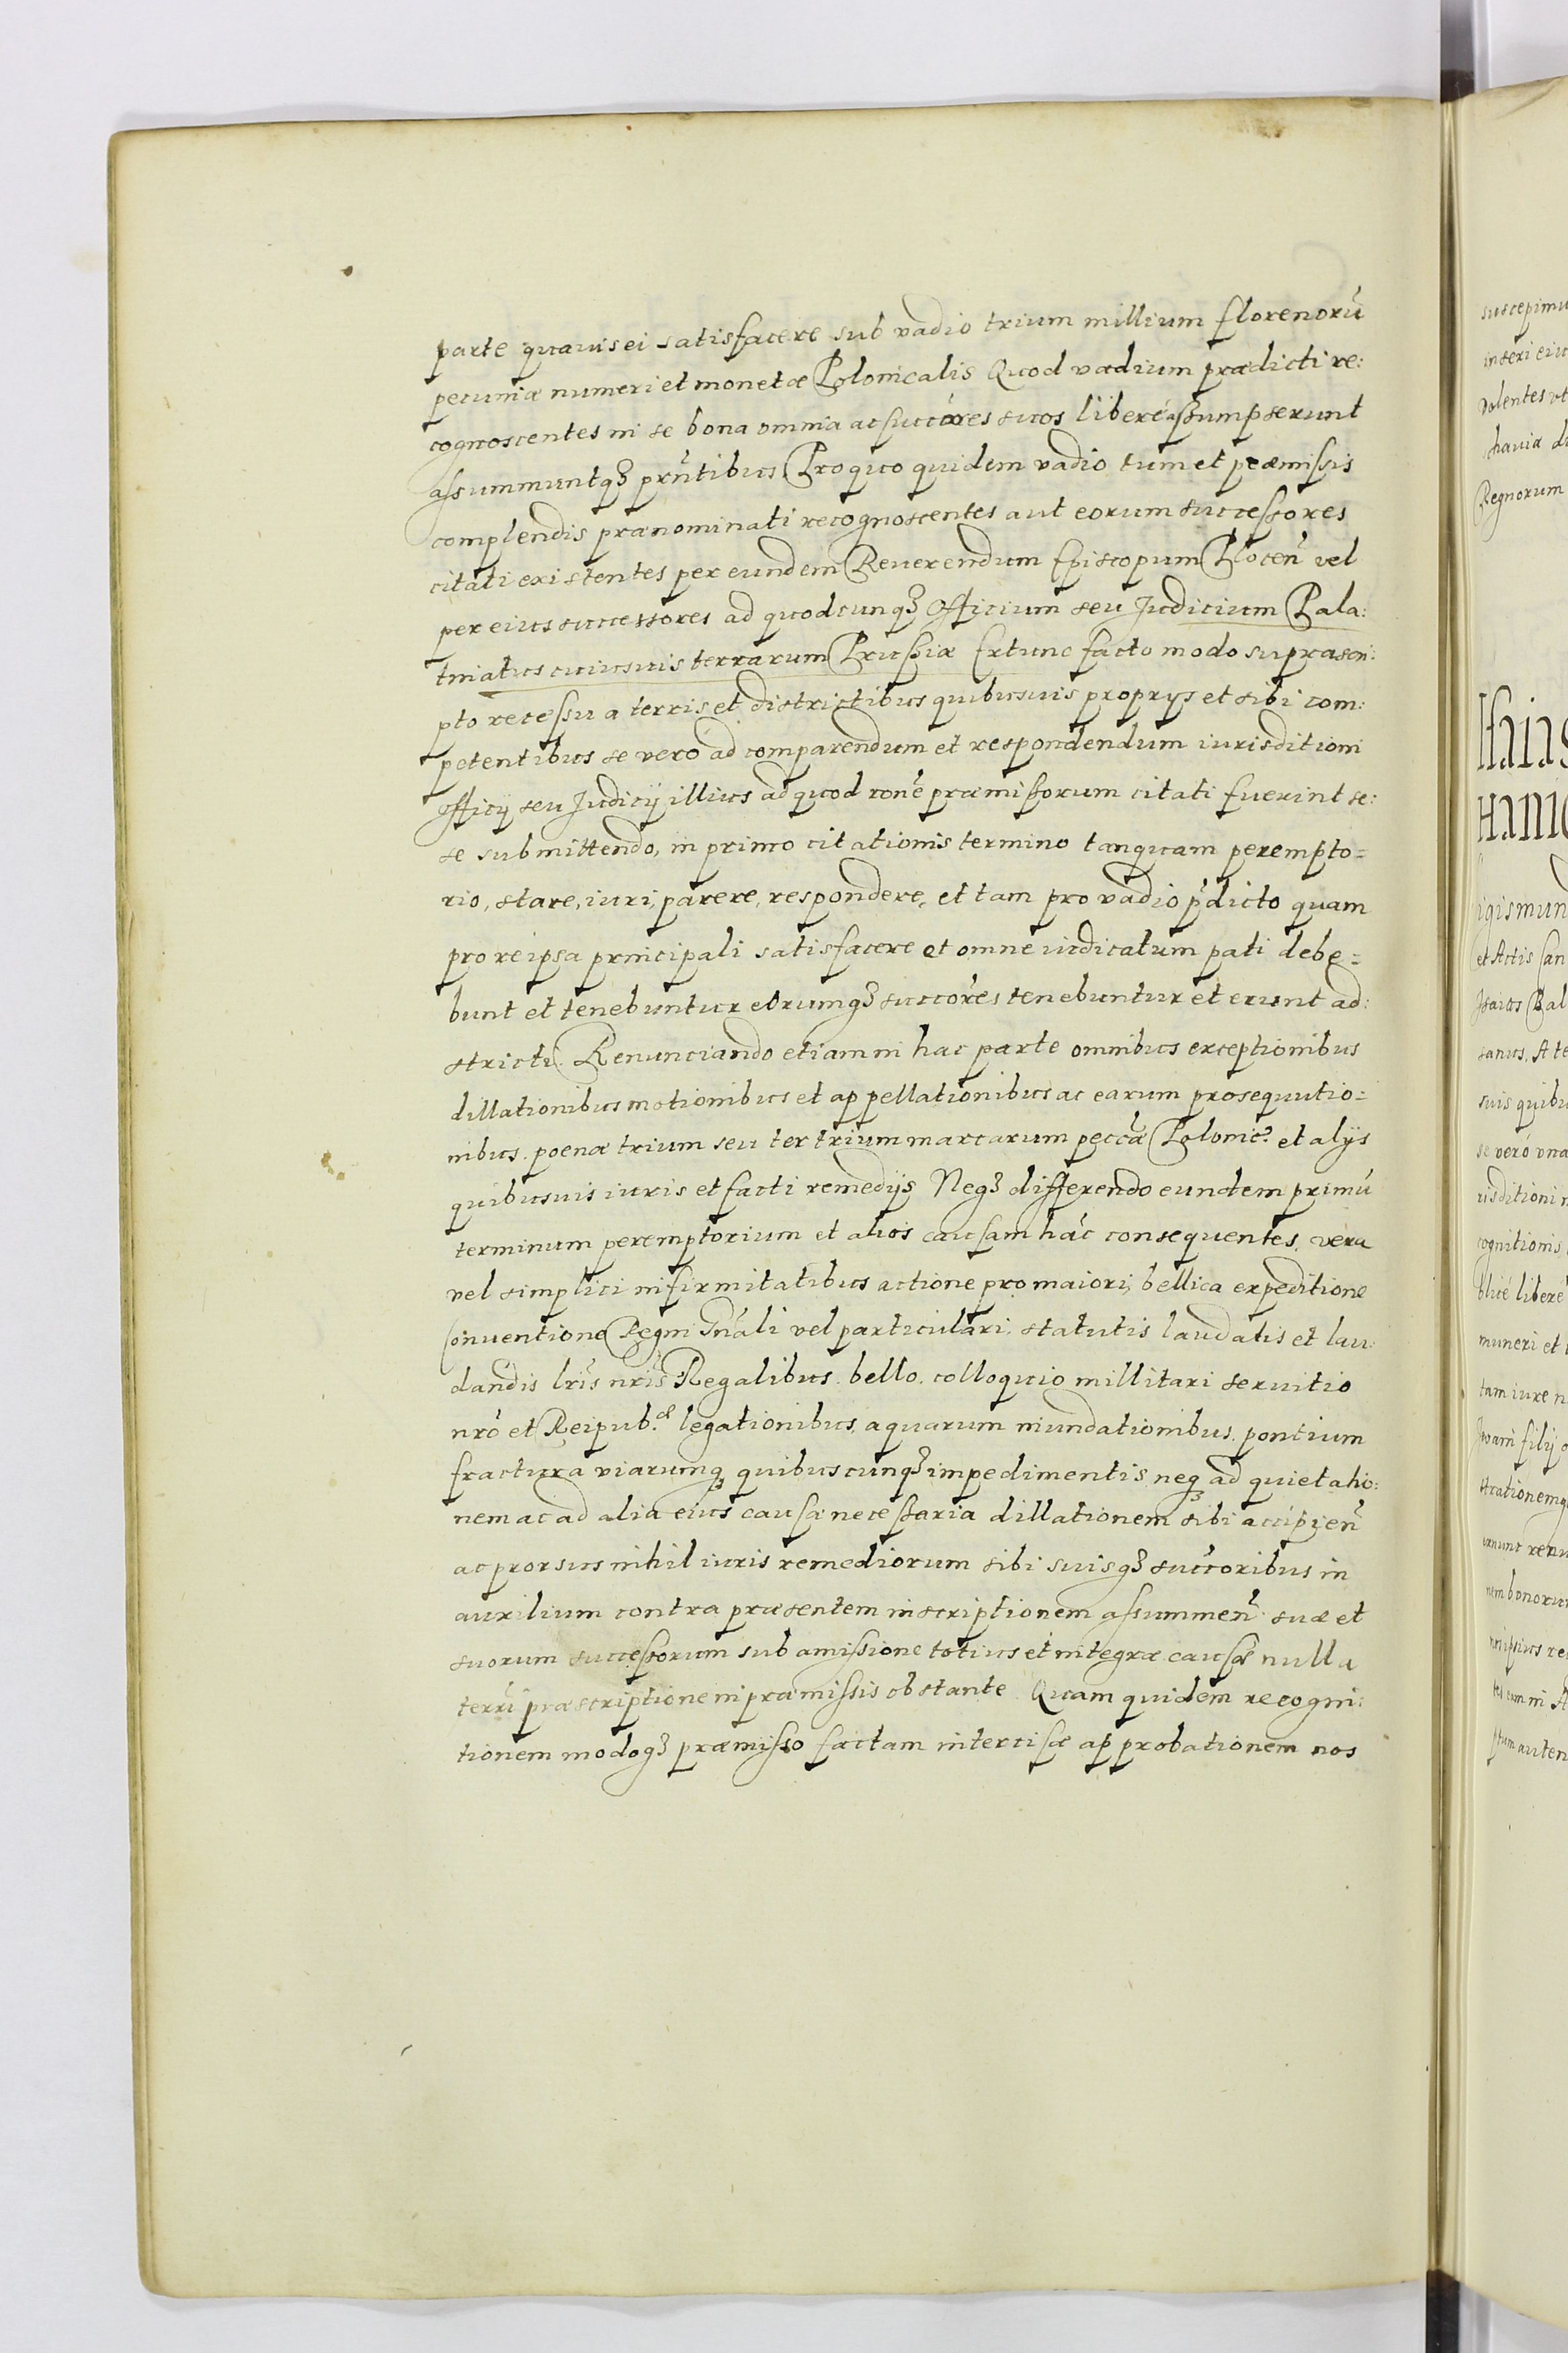 parte quauis ei satisfacere sub vadio trium millium florenorū
pecuniæ numeri et monetæ Polonicalis Quod vadium prædicti re:
cognoscentes in se bona omnia ac succōres suos liberè assumpserunt
assummuntq₃ prñtibus Pro quo quidem vadio tum et præmissis
complendis prænominati recognoscentes aut eorum successores
citati existentes per eundem Reuerendum Episcopum Plocen̄ vel
per eius successores ad quodcunq₃ Officium seu Judicium Pala:
tinatus cuiusuis terrarum Prussiæ Extunc facto modo suprascri:
pto recessu a terris et districtibus quibusuis proprys et sibi com:
petentibus se verò ad comparendum et respondendum iurisditioni
officij seu Judicij illius ad quod rōne præmissorum citati fuerint se:
se submittendo, in primo citationis termino tanquam perempto=
rio, stare, iuri, parere, respondere, et tam pro vadio p̄dicto quam
pro re ipsa principali satisfacere et omne iudicatum pati debe=
bunt et tenebuntur eorumq₃ succōres tenebuntur et erunt ad:
stricti. Renunciando etiam in hac parte omnibus exceptionibus
dillationibus motionibus et appellationibus ac earum prosequutio=
nibus. poenæ trium seu ter trium marcarum peccǣ Polonic? et alijs
quibusuis iuris et facti remedijs Neq₃ differendo eundem primū
terminum peremptorium et alios causam hāc consequentes, vera
vel simplici infirmitatibus actione pro maiori, bellica expeditione
Conuentione Regni Gn̄ali vel particulari, statutis laudatis et lau:
dandis lr̄is nr̄is Regalibus. bello. colloquio millitari seruitio
nrō et Reipub.æ legationibus, aquarum inundationibus, pontium
fractura viarumq₃ quibuscunq₃ impedimentis neq₃ ad quietatio:
nem ac ad alia eius causæ necessaria dillationem sibi accipien̄
ac prorsus nihil iuris remediorum sibi suisq₃ succ̄oribus in
auxilium contra præsentem inscriptionem assummen̄ suæ et
suorum successorum sub amissione totius et integræ causæ nulla
terr̄i præscriptione in præmissis obstante. Quam quidem recogni:
tionem modoq₃ præmisso factam intercisæ approbationem nos
suscepimu
Regnorum